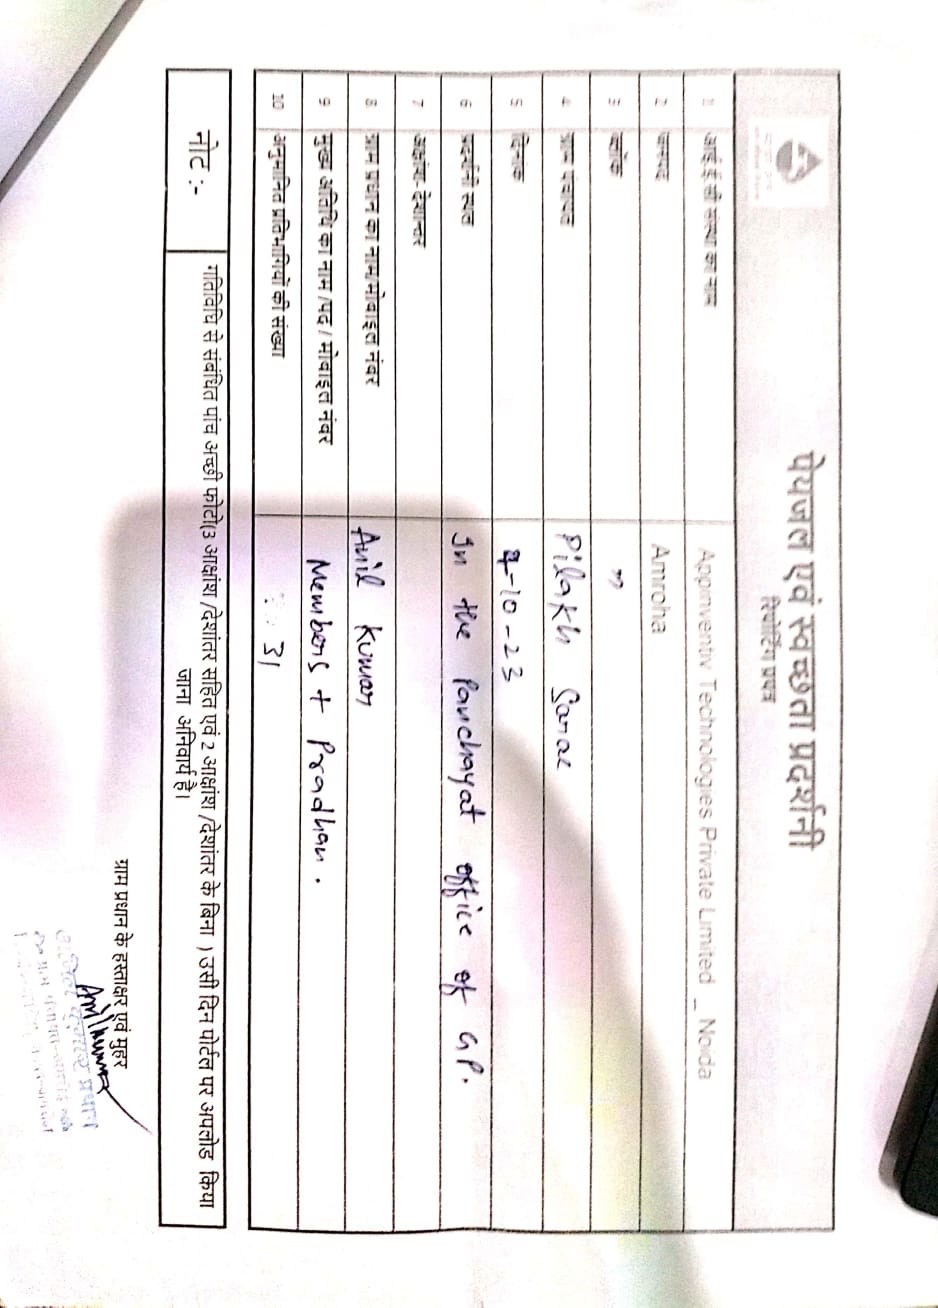 पेयजल एवं स्वच्छता प्रदर्शनी
रिपोर्टिंग प्रपत्र
1 आई ई सी संस्था का नाम Appinventiv Technologies Private Limited _ Noida
2 जनपद Amroha
3 ब्लॉक "
4 ग्राम पंचायत Pilakh Sarae
5 दिनांक 7-10-23
6 प्रदर्शनी स्थल In the Panchayat office of GP.
7 अक्षांश-देशान्तर
8 ग्राम प्रधान का नाम/मोबाइल नंबर Anil Kumar
9 मुख्य अतिथि का नाम /पद / मोबाइल नंबर Members + Pradhan.
10 अनुमानित प्रतिभागियों की संख्या 31
नोट :-
गतिविधि से संबंधित पांच अच्छी फोटो(3 आक्षांश /देशांतर सहित एवं 2 आक्षांश /देशांतर के बिना ) उसी दिन पोर्टल पर अपलोड किया
जाना अनिवार्य है।
ग्राम प्रधान के हस्ताक्षर एवं मुहर
Anil Kumar